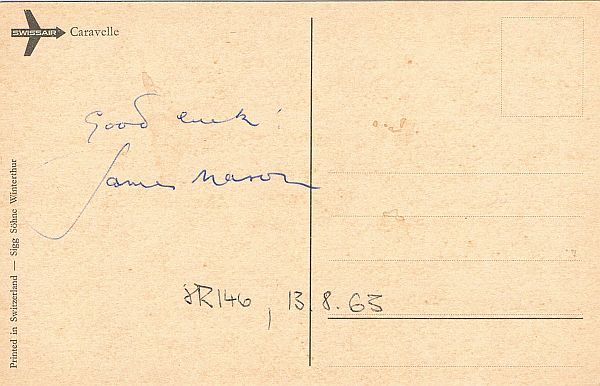 SWISSAIR Caravelle
Good luck!
James Mason
SR146, 13.8.63
Printed in Switzerland — Sigg Söhne Winterthur